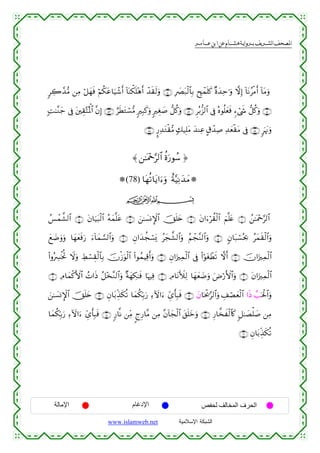 المصحف الشريف برواية هشام عن ابن عامر
وَمَآ أَمْرُنَآ إِلَّا وَٰحِدَةٌ كَلَمْحٍۭ بِٱلْبَصَرِ ۝ وَلَقَدْ أَهْلَكْنَآ أَشْيَاعَكُمْ فَهَلْ مِن مُّدَّكِرٍ
۝ وَكُلُّ شَىْءٍ فَعَلُوهُ فِى ٱلزُّبُرِ ۝ وَكُلُّ صَغِيرٍ وَكَبِيرٍ مُّسْتَطَرٌ ۝ إِنَّ ٱلْمُتَّقِينَ فِى جَنَّٰتٍ
وَنَهَرٍ ۝ فِى مَقْعَدِ صِدْقٍ عِندَ مَلِيكٍ مُّقْتَدِرٍ ۝
﴿ سُورَةُ ٱلرَّحْمَٰنِ ﴾
مَدَنِيَّةٌ وَءَايَاتُهَا (78)
بسم الله الرحمن الرحيم
ٱلرَّحْمَٰنُ ۝ عَلَّمَ ٱلْقُرْءَانَ ۝ خَلَقَ ٱلْإِنسَٰنَ ۝ عَلَّمَهُ ٱلْبَيَانَ ۝ ٱلشَّمْسُ
وَٱلْقَمَرُ بِحُسْبَانٍ ۝ وَٱلنَّجْمُ وَٱلشَّجَرُ يَسْجُدَانِ ۝ وَٱلسَّمَآءَ رَفَعَهَا وَوَضَعَ
ٱلْمِيزَانَ ۝ أَلَّا تَطْغَوْا۟ فِى ٱلْمِيزَانِ ۝ وَأَقِيمُوا۟ ٱلْوَزْنَ بِٱلْقِسْطِ وَلَا تُخْسِرُوا۟
ٱلْمِيزَانَ ۝ وَٱلْأَرْضَ وَضَعَهَا لِلْأَنَامِ ۝ فِيهَا فَٰكِهَةٌ وَٱلنَّخْلُ ذَاتُ ٱلْأَكْمَامِ ۝
وَٱلْحَبَّ ذَا ٱلْعَصْفِ وَٱلرَّيْحَانَ ۝ فَبِأَىِّ ءَالَآءِ رَبِّكُمَا تُكَذِّبَانِ ۝ خَلَقَ ٱلْإِنسَٰنَ
مِن صَلْصَٰلٍ كَٱلْفَخَّارِ ۝ وَخَلَقَ ٱلْجَآنَّ مِن مَّارِجٍ مِّن نَّارٍ ۝ فَبِأَىِّ ءَالَآءِ رَبِّكُمَا
تُكَذِّبَانِ ۝
الحرف المخالف لحفص الإدغام الإمالة
الشبكة الإسلامية www.islamweb.net